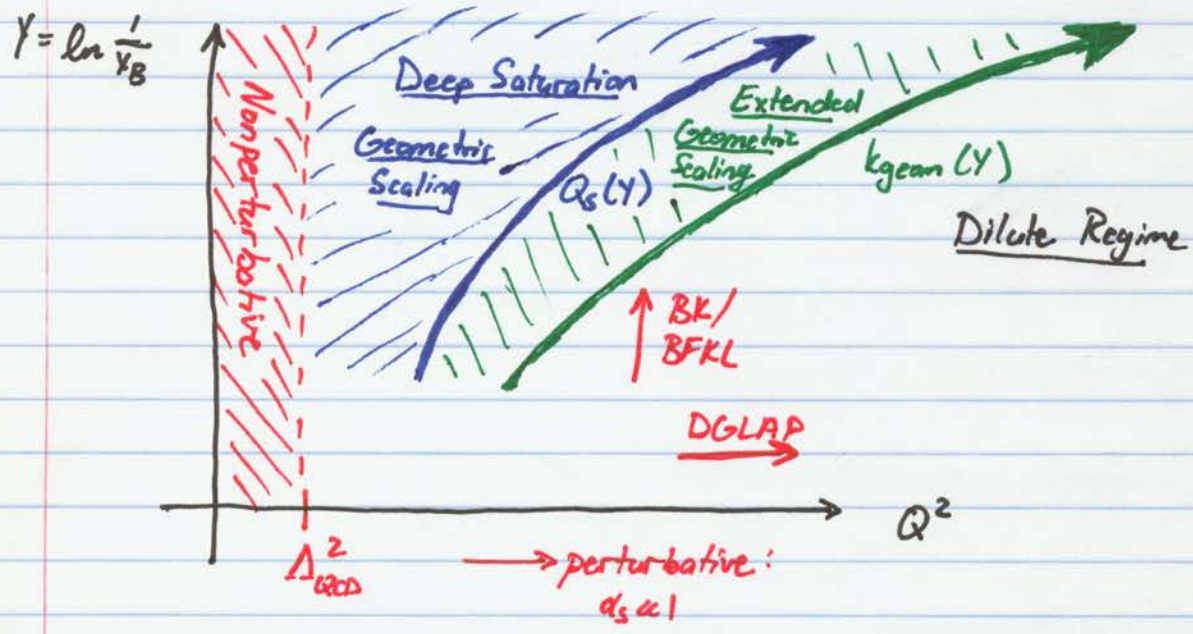 Y = ln 1/x_B
Nonperturbative
Deep Saturation
Geometric
Scaling
Q_s(Y)
Extended
Geometric
Scaling
k_geom (Y)
Dilute Regime
BK/
BFKL
DGLAP
Q²
Λ²_QCD
→ perturbative:
α_s << 1